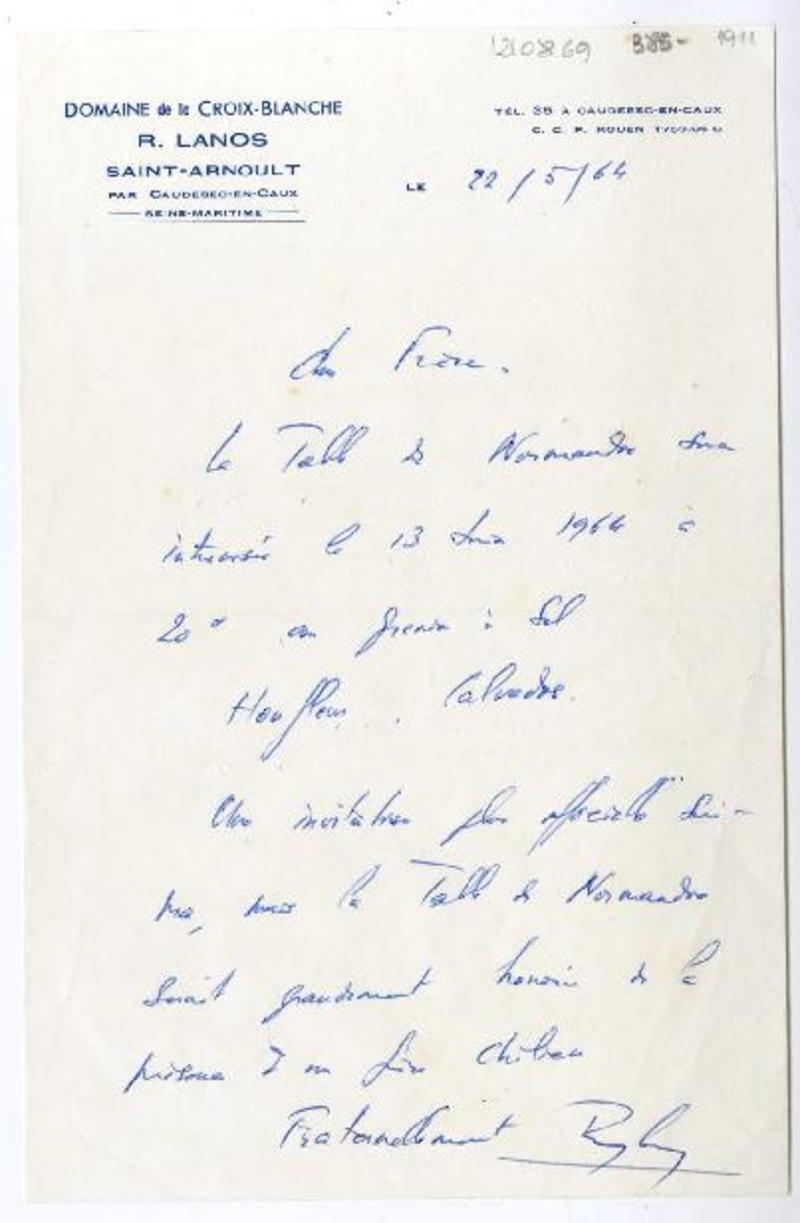 210869 385- 1911
DOMAINE de la CROIX-BLANCHE
R. LANOS
SAINT-ARNOULT
PAR CAUDEBEC-EN-CAUX
SEINE-MARITIME
TÉL. 35 A CAUDEBEC-EN-CAUX
C. C. P. ROUEN
LE 22/5/64
Cher Frère.
La Table de Normandie sera
intronisée le 13 Juin 1964 à
20H au grenier à Sel
Honfleur, Calvados.
Une invitation plus officielle sui-
vra, mais la Table de Normandie
serait grandement honorée de la
présence d'un frère chilien
Fraternellement